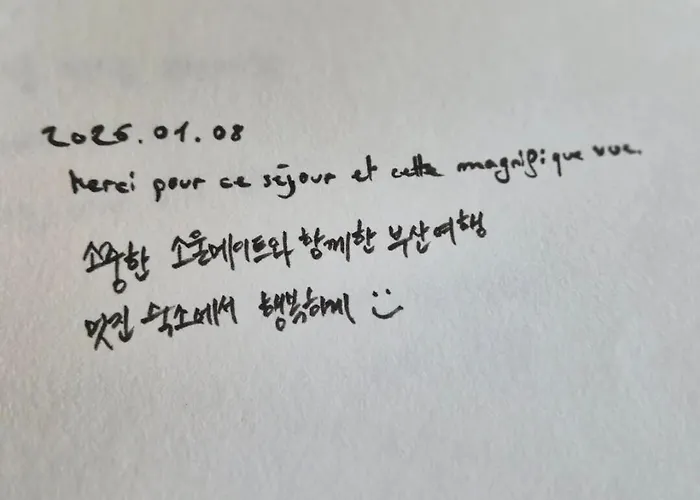 2026.01.08
Merci pour ce séjour et cette magnifique vue.
소중한 소울메이트와 함께한 부산여행
멋진 숙소에서 행복하게 :)